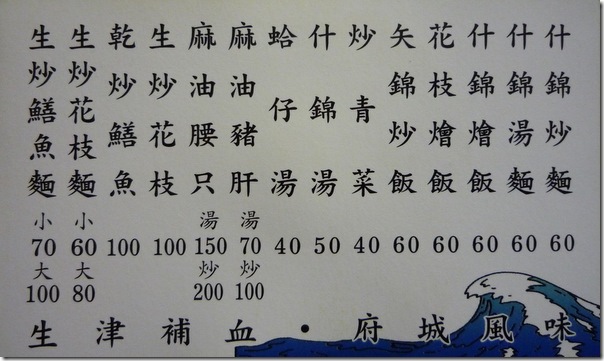 生炒鱔魚麵 小 70 大 100
生炒花枝麵 小 60 大 80
乾炒鱔魚 100
生炒花枝 100
麻油腰只 湯 150 炒 200
麻油豬肝 湯 70 炒 100
蛤仔湯 40
什錦湯 50
炒青菜 40
矢錦炒飯 60
花枝燴飯 60
什錦燴飯 60
什錦湯麵 60
什錦炒麵 60
生津補血・府城風味